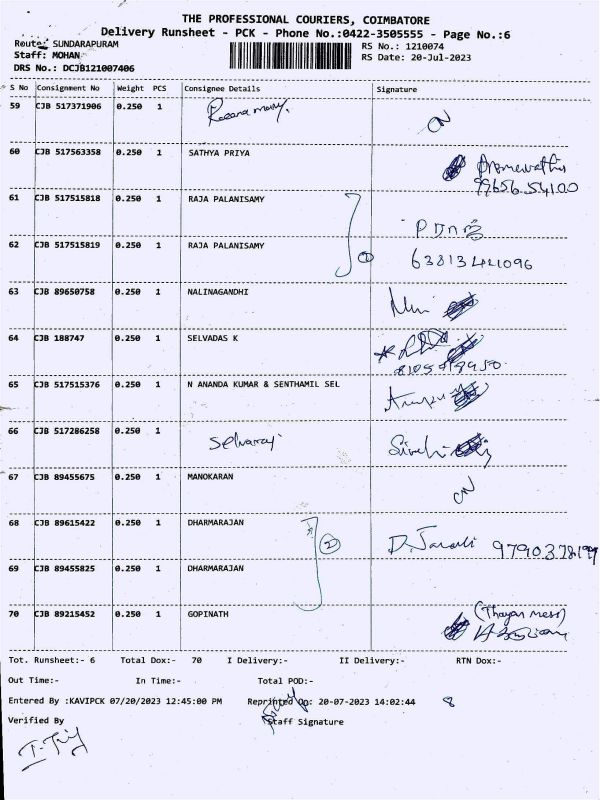 THE PROFESSIONAL COURIERS, COIMBATORE
Delivery Runsheet - PCK - Phone No.:0422-3505555 - Page No.:6
Route: SUNDARAPURAM RS No.: 1210074
Staff: MOHAN RS Date: 20-Jul-2023
DRS No.: DCJB121007406
S No Consignment No Weight PCS Consignee Details Signature
59 CJB 517371906 0.250 1
60 CJB 517563358 0.250 1 SATHYA PRIYA
61 CJB 517515818 0.250 1 RAJA PALANISAMY
62 CJB 517515819 0.250 1 RAJA PALANISAMY
63 CJB 89650758 0.250 1 NALINAGANDHI
64 CJB 188747 0.250 1 SELVADAS K
65 CJB 517515376 0.250 1 N ANANDA KUMAR & SENTHAMIL SEL
66 CJB 517286258 0.250 1 Selvaraj
67 CJB 89455675 0.250 1 MANOKARAN
68 CJB 89615422 0.250 1 DHARMARAJAN 2
69 CJB 89455825 0.250 1 DHARMARAJAN
70 CJB 89215452 0.250 1 GOPINATH
Tot. Runsheet:- 6 Total Dox:- 70 I Delivery:- II Delivery:- RTN Dox:-
Out Time:- In Time:- Total POD:-
Entered By :KAVIPCK 07/20/2023 12:45:00 PM Reprinted On: 20-07-2023 14:02:44 8
Verified By Staff Signature